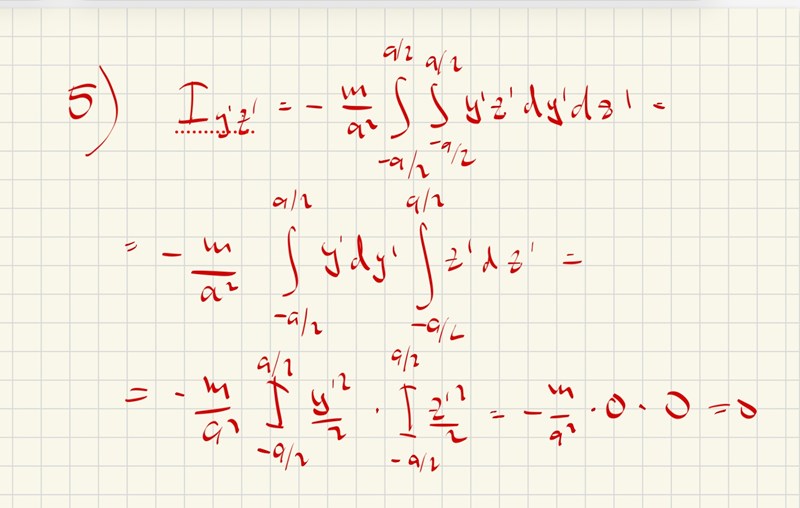 5) I_{y'z'} = - m/a² ∫_{-a/2}^{a/2} ∫_{-a/2}^{a/2} y'z'dy'dz' =
= - m/a² ∫_{-a/2}^{a/2} y'dy' ∫_{-a/2}^{a/2} z'dz' =
= - m/a² [_{-a/2}^{a/2} y'²/2 · [_{-a/2}^{a/2} z'²/2 = - m/a² · 0 · 0 = 0